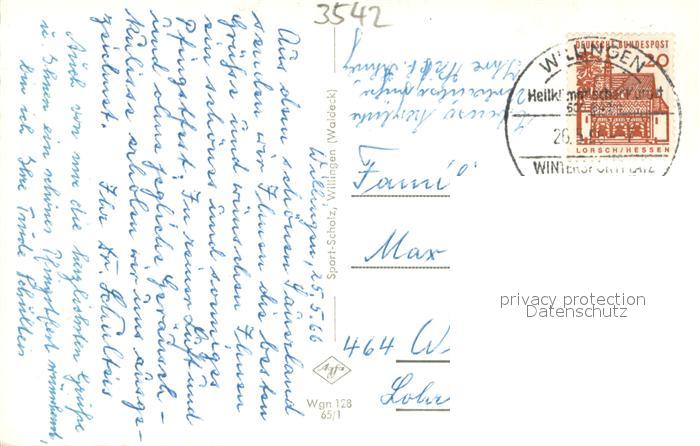 3542
Willingen, 25.5.66
Aus dem schönen Sauerland
senden wir Ihnen die besten
Grüße und wünschen Ihnen
ein schönes und sonniges
Pfingstfest. In reiner Luft und
und ohne jegliche Geräusch-
kulisse erholen wir uns ausge-
zeichnet.
Ihr Dr. Schultes
Auch von mir die herzlichsten Grüße
u. Ihnen ein schönes Pfingstfest wünschend,
bin ich Ihre Trude Schultes
Sport-Scholz, Willingen (Waldeck)
Wgn 128
65/1
Ihre
WILLINGEN
Heilklimatischer Kurort
26.5.
WINTERSPORTPLATZ
DEUTSCHE BUNDESPOST
20
LORSCH/HESSEN
Fami
Max
464 W
Lohr
privacy protection
Datenschutz